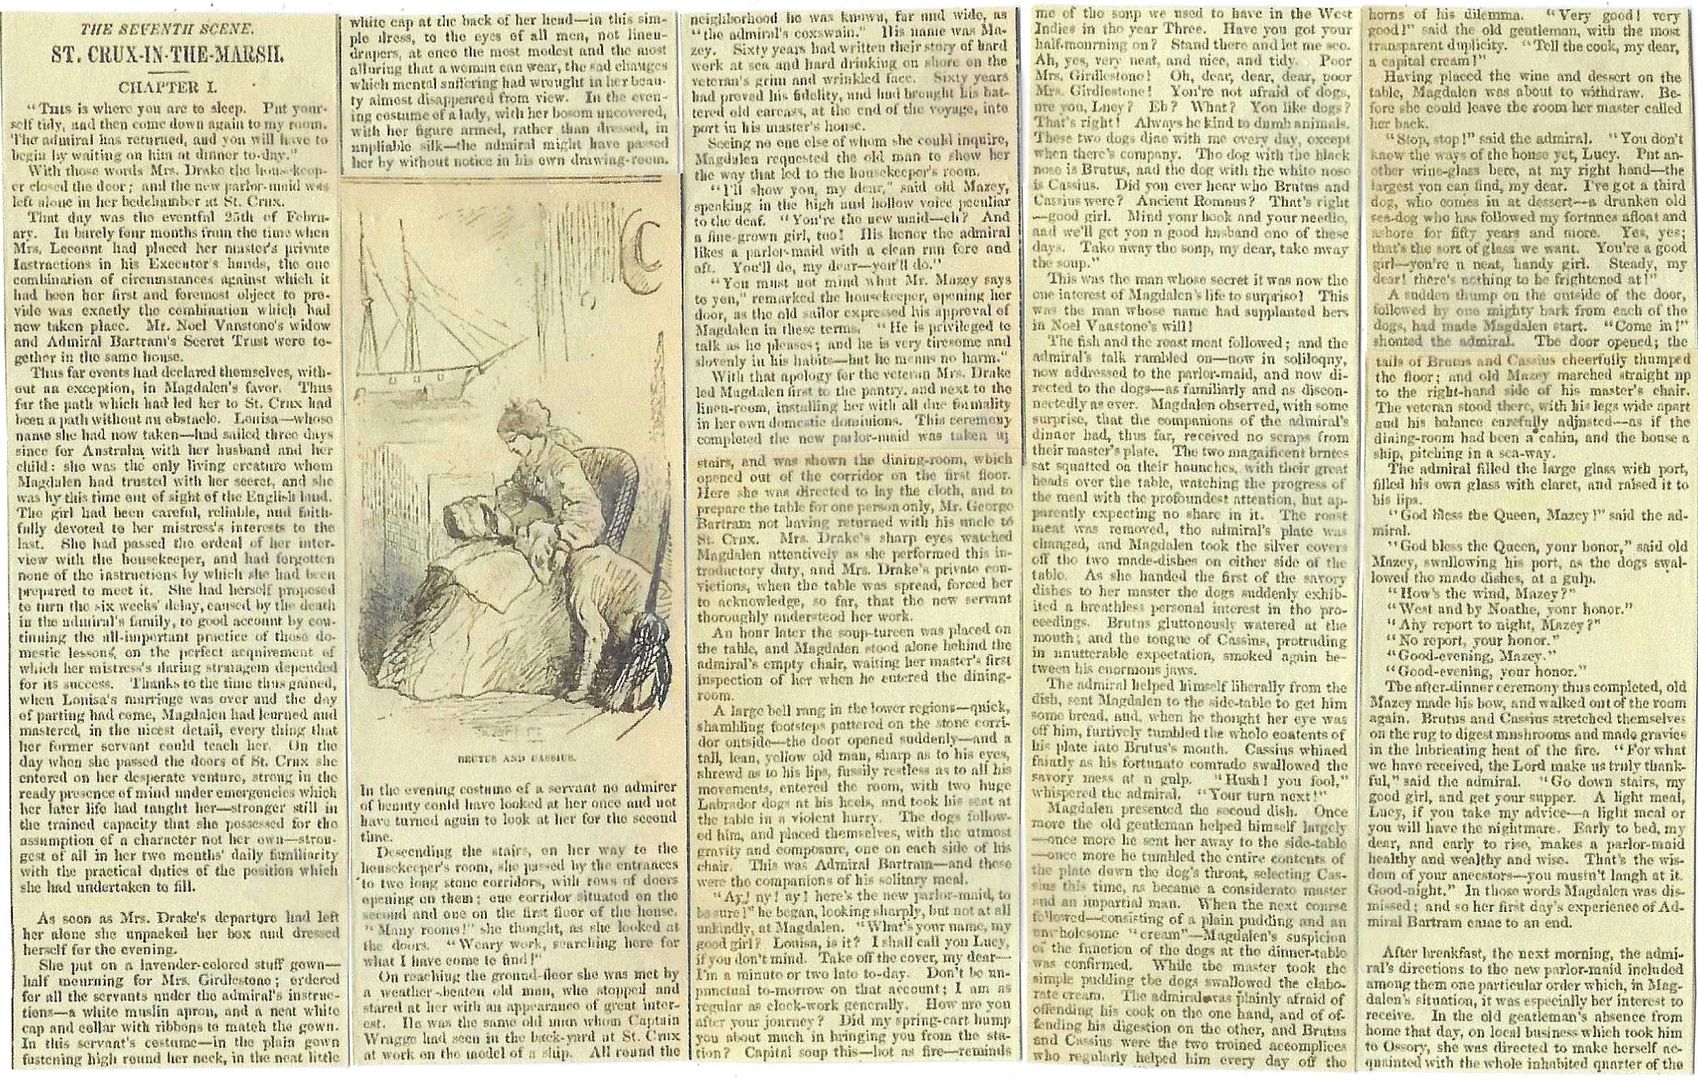 THE SEVENTH SCENE.
ST. CRUX-IN-THE-MARSH.
CHAPTER I.
"THIS is where you are to sleep. Put your-
self tidy, and then come down again to my room.
The admiral has returned, and you will have to
begin by waiting on him at dinner to-day."
With those words Mrs. Drake the housekeep-
er closed the door; and the new parlor-maid was
left alone in her bedchamber at St. Crux.
That day was the eventful 25th of Febru-
ary. In barely four months from the time when
Mrs. Lecount had placed her master's private
Instructions in his Executor's hands, the one
combination of circumstances against which it
had been her first and foremost object to pro-
vide was exactly the combination which had
now taken place. Mr. Noel Vanstone's widow
and Admiral Bartram's Secret Trust were to-
gether in the same house.
Thus far events had declared themselves, with-
out an exception, in Magdalen's favor. Thus
far the path which had led her to St. Crux had
been a path without an obstacle. Louisa—whose
name she had now taken—had sailed three days
since for Australia with her husband and her
child: she was the only living creature whom
Magdalen had trusted with her secret, and she
was by this time out of sight of the English land.
The girl had been careful, reliable, and faith-
fully devoted to her mistress's interests to the
last. She had passed the ordeal of her inter-
view with the housekeeper, and had forgotten
none of the instructions by which she had been
prepared to meet it. She had herself proposed
to turn the six weeks' delay, caused by the death
in the admiral's family, to good account by con-
tinuing the all-important practice of those do-
mestic lessons, on the perfect acquirement of
which her mistress's daring stratagem depended
for its success. Thanks to the time thus gained,
when Louisa's marriage was over and the day
of parting had come, Magdalen had learned and
mastered, in the nicest detail, every thing that
her former servant could teach her. On the
day when she passed the doors of St. Crux she
entered on her desperate venture, strong in the
ready presence of mind under emergencies which
her later life had taught her—stronger still in
the trained capacity that she possessed for the
assumption of a character not her own—stron-
gest of all in her two months' daily familiarity
with the practical duties of the position which
she had undertaken to fill.
As soon as Mrs. Drake's departure had left
her alone she unpacked her box and dressed
herself for the evening.
She put on a lavender-colored stuff gown—
half mourning for Mrs. Girdlestone; ordered
for all the servants under the admiral's instruc-
tions—a white muslin apron, and a neat white
cap and collar with ribbons to match the gown.
In this servant's costume—in the plain gown
fastening high round her neck, in the neat little
white cap at the back of her head—in this sim-
ple dress, to the eyes of all men, not linen-
drapers, at once the most modest and the most
alluring that a woman can wear, the sad changes
which mental suffering had wrought in her beau-
ty almost disappeared from view. In the even-
ing costume of a lady, with her bosom uncovered,
with her figure armed, rather than dressed, in
unpliable silk—the admiral might have passed
her by without notice in his own drawing-room.
BRUTUS AND CASSIUS.
In the evening costume of a servant no admirer
of beauty could have looked at her once and not
have turned again to look at her for the second
time.
Descending the stairs, on her way to the
housekeeper's room, she passed by the entrances
to two long stone corridors, with rows of doors
opening on them; one corridor situated on the
second and one on the first floor of the house.
"Many rooms!" she thought, as she looked at
the doors. "Weary work, searching here for
what I have come to find!"
On reaching the ground-floor she was met by
a weather-beaten old man, who stopped and
stared at her with an appearance of great inter-
est. He was the same old man whom Captain
Wragge had seen in the back-yard at St. Crux
at work on the model of a ship. All round the
neighborhood he was known, far and wide, as
"the admiral's coxswain." His name was Ma-
zey. Sixty years had written their story of hard
work at sea and hard drinking on shore on the
veteran's grim and wrinkled face. Sixty years
had proved his fidelity, and had brought his bat-
tered old carcass, at the end of the voyage, into
port in his master's house.
Seeing no one else of whom she could inquire,
Magdalen requested the old man to show her
the way that led to the housekeeper's room.
"I'll show you, my dear," said old Mazey,
speaking in the high and hollow voice peculiar
to the deaf. "You're the new maid—eh? And
a fine-grown girl, too! His honor the admiral
likes a parlor-maid with a clean run fore and
aft. You'll do, my dear—you'll do."
"You must not mind what Mr. Mazey says
to you," remarked the housekeeper, opening her
door, as the old sailor expressed his approval of
Magdalen in these terms. "He is privileged to
talk as he pleases; and he is very tiresome and
slovenly in his habits—but he means no harm."
With that apology for the veteran Mrs. Drake
led Magdalen first to the pantry, and next to the
linen-room, installing her with all due formality
in her own domestic dominions. This ceremony
completed the new parlor-maid was taken up
stairs, and was shown the dining-room, which
opened out of the corridor on the first floor.
Here she was directed to lay the cloth, and to
prepare the table for one person only, Mr. George
Bartram not having returned with his uncle to
St. Crux. Mrs. Drake's sharp eyes watched
Magdalen attentively as she performed this in-
troductory duty, and Mrs. Drake's private con-
victions, when the table was spread, forced her
to acknowledge, so far, that the new servant
thoroughly understood her work.
An hour later the soup-tureen was placed on
the table, and Magdalen stood alone behind the
admiral's empty chair, waiting her master's first
inspection of her when he entered the dining-
room.
A large bell rang in the lower regions—quick,
shambling footsteps pattered on the stone corri-
dor outside—the door opened suddenly—and a
tall, lean, yellow old man, sharp as to his eyes,
shrewd as to his lips, fussily restless as to all his
movements, entered the room, with two huge
Labrador dogs at his heels, and took his seat at
the table in a violent hurry. The dogs follow-
ed him, and placed themselves, with the utmost
gravity and composure, one on each side of his
chair. This was Admiral Bartram—and these
were the companions of his solitary meal.
"Ay! ay! ay! here's the new parlor-maid, to
be sure!" he began, looking sharply, but not at all
unkindly, at Magdalen. "What's your name, my
good girl? Louisa, is it? I shall call you Lucy,
if you don't mind. Take off the cover, my dear—
I'm a minute or two late to-day. Don't be un-
punctual to-morrow on that account; I am as
regular as clock-work generally. How are you
after your journey? Did my spring-cart bump
you about much in bringing you from the sta-
tion? Capital soup this—hot as fire—reminds
me of the soup we used to have in the West
Indies in the year Three. Have you got your
half-mourning on? Stand there and let me see.
Ah, yes, very neat, and nice, and tidy. Poor
Mrs. Girdlestone! Oh, dear, dear, dear, poor
Mrs. Girdlestone! You're not afraid of dogs,
are you, Lucy? Eh? What? You like dogs?
That's right! Always be kind to dumb animals.
These two dogs dine with me every day, except
when there's company. The dog with the black
nose is Brutus, and the dog with the white nose
is Cassius. Did you ever hear who Brutus and
Cassius were? Ancient Romans? That's right
—good girl. Mind your book and your needle,
and we'll get you a good husband one of these
days. Take away the soup, my dear, take away
the soup."
This was the man whose secret it was now the
one interest of Magdalen's life to surprise! This
was the man whose name had supplanted hers
in Noel Vanstone's will!
The fish and the roast meat followed; and the
admiral's talk rambled on—now in soliloquy,
now addressed to the parlor-maid, and now di-
rected to the dogs—as familiarly and as discon-
nectedly as ever. Magdalen observed, with some
surprise, that the companions of the admiral's
dinner had, thus far, received no scraps from
their master's plate. The two magnificent brutes
sat squatted on their haunches, with their great
heads over the table, watching the progress of
the meal with the profoundest attention, but ap-
parently expecting no share in it. The roast
meat was removed, the admiral's plate was
changed, and Magdalen took the silver covers
off the two made-dishes on either side of the
table. As she handed the first of the savory
dishes to her master the dogs suddenly exhib-
ited a breathless personal interest in the pro-
ceedings. Brutus gluttonously watered at the
mouth; and the tongue of Cassius, protruding
in unutterable expectation, smoked again be-
tween his enormous jaws.
The admiral helped himself liberally from the
dish, sent Magdalen to the side-table to get him
some bread, and, when he thought her eye was
off him, furtively tumbled the whole contents of
his plate into Brutus's mouth. Cassius whined
faintly as his fortunate comrade swallowed the
savory mess at a gulp. "Hush! you fool,"
whispered the admiral. "Your turn next!"
Magdalen presented the second dish. Once
more the old gentleman helped himself largely
—once more he sent her away to the side-table
—once more he tumbled the entire contents of
the plate down the dog's throat, selecting Cas-
sius this time, as became a considerate master
and an impartial man. When the next course
followed—consisting of a plain pudding and an
unwholesome "cream"—Magdalen's suspicion
of the function of the dogs at the dinner-table
was confirmed. While the master took the
simple pudding the dogs swallowed the elabo-
rate cream. The admiral was plainly afraid of
offending his cook on the one hand, and of of-
fending his digestion on the other, and Brutus
and Cassius were the two trained accomplices
who regularly helped him every day off the
horns of his dilemma. "Very good! very
good!" said the old gentleman, with the most
transparent duplicity. "Tell the cook, my dear,
a capital cream!"
Having placed the wine and dessert on the
table, Magdalen was about to withdraw. Be-
fore she could leave the room her master called
her back.
"Stop, stop!" said the admiral. "You don't
know the ways of the house yet, Lucy. Put an-
other wine-glass here, at my right hand—the
largest you can find, my dear. I've got a third
dog, who comes in at dessert—a drunken old
sea-dog who has followed my fortunes afloat and
ashore for fifty years and more. Yes, yes;
that's the sort of glass we want. You're a good
girl—you're a neat, handy girl. Steady, my
dear! there's nothing to be frightened at!"
A sudden thump on the outside of the door,
followed by one mighty bark from each of the
dogs, had made Magdalen start. "Come in!"
shouted the admiral. The door opened; the
tails of Brutus and Cassius cheerfully thumped
the floor; and old Mazey marched straight up
to the right-hand side of his master's chair.
The veteran stood there, with his legs wide apart
and his balance carefully adjusted—as if the
dining-room had been a cabin, and the house a
ship, pitching in a sea-way.
The admiral filled the large glass with port,
filled his own glass with claret, and raised it to
his lips.
"God bless the Queen, Mazey!" said the ad-
miral.
"God bless the Queen, your honor," said old
Mazey, swallowing his port, as the dogs swal-
lowed the made dishes, at a gulp.
"How's the wind, Mazey?"
"West and by Noathe, your honor."
"Any report to night, Mazey?"
"No report, your honor."
"Good-evening, Mazey."
"Good-evening, your honor."
The after-dinner ceremony thus completed, old
Mazey made his bow, and walked out of the room
again. Brutus and Cassius stretched themselves
on the rug to digest mushrooms and made gravies
in the lubricating heat of the fire. "For what
we have received, the Lord make us truly thank-
ful," said the admiral. "Go down stairs, my
good girl, and get your supper. A light meal,
Lucy, if you take my advice—a light meal or
you will have the nightmare. Early to bed, my
dear, and early to rise, makes a parlor-maid
healthy and wealthy and wise. That's the wis-
dom of your ancestors—you mustn't laugh at it.
Good-night." In those words Magdalen was dis-
missed; and so her first day's experience of Ad-
miral Bartram came to an end.
After breakfast, the next morning, the admi-
ral's directions to the new parlor-maid included
among them one particular order which, in Mag-
dalen's situation, it was especially her interest to
receive. In the old gentleman's absence from
home that day, on local business which took him
to Ossory, she was directed to make herself ac-
quainted with the whole inhabited quarter of the